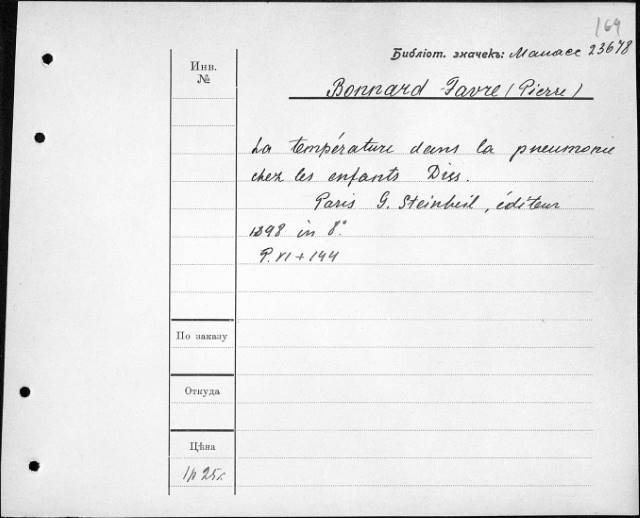 164
Библіот. значекъ: Манасс 23678
Инв.
№
Bonnard Favre (Pierre)
La température dans la pneumonie
chez les enfants Diss.
Paris G. Steinheil, éditeur
1898 in 8°
P. VI + 144
По заказу
Откуда
Цѣна
1р 25к